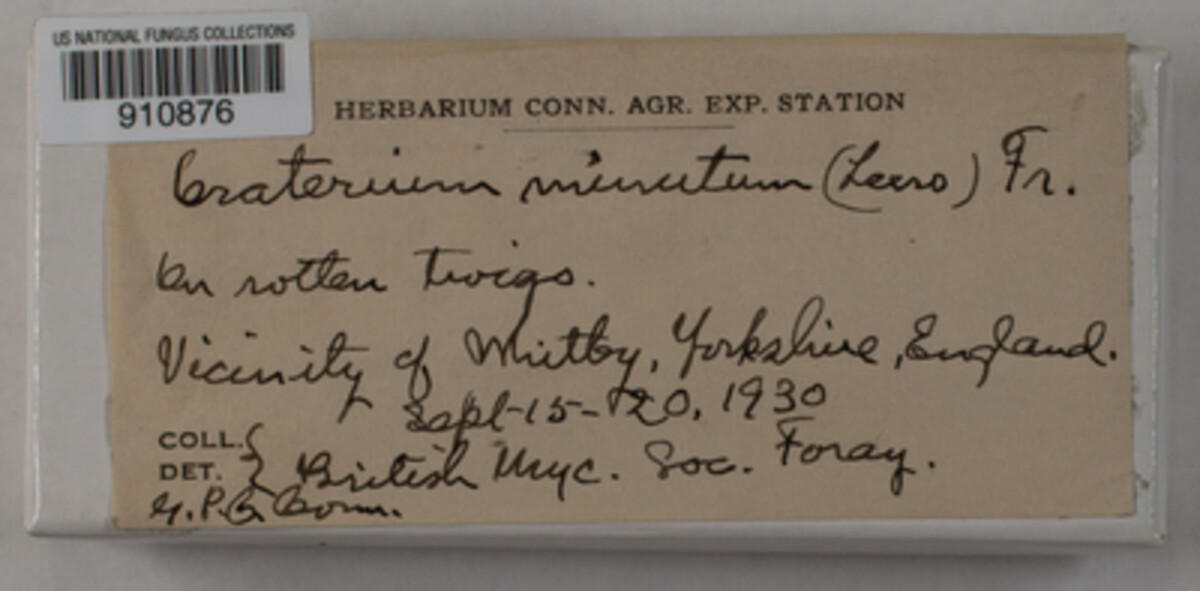 US NATIONAL FUNGUS COLLECTIONS
910876
HERBARIUM CONN. AGR. EXP. STATION
Craterium minutum (Leers) Fr.
On rotten twigs.
Vicinity of Whitby, Yorkshire, England.
Sept-15-20, 1930
COLL.
DET. British Myc. Soc. Foray.
G.P.C. Conn.